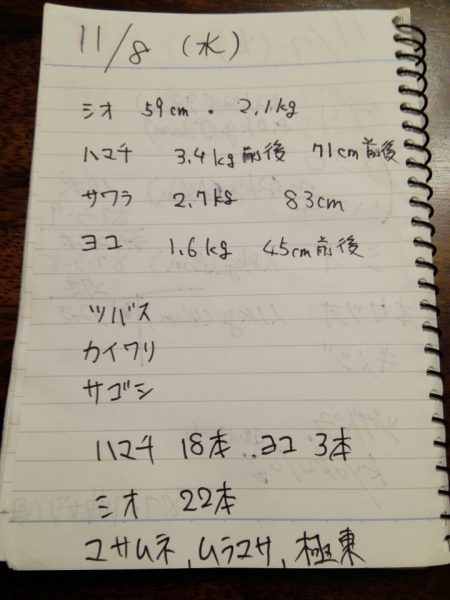 11/8 (水)
シオ 59cm . 2.1kg
ハマチ 3.4kg前後 71cm前後
サワラ 2.7kg 83cm
ヨコ 1.6kg 45cm前後
ツバス
カイワリ
サゴシ
ハマチ 18本 ヨコ 3本
シオ 22本
コサムネ, ムラコサ, 極東